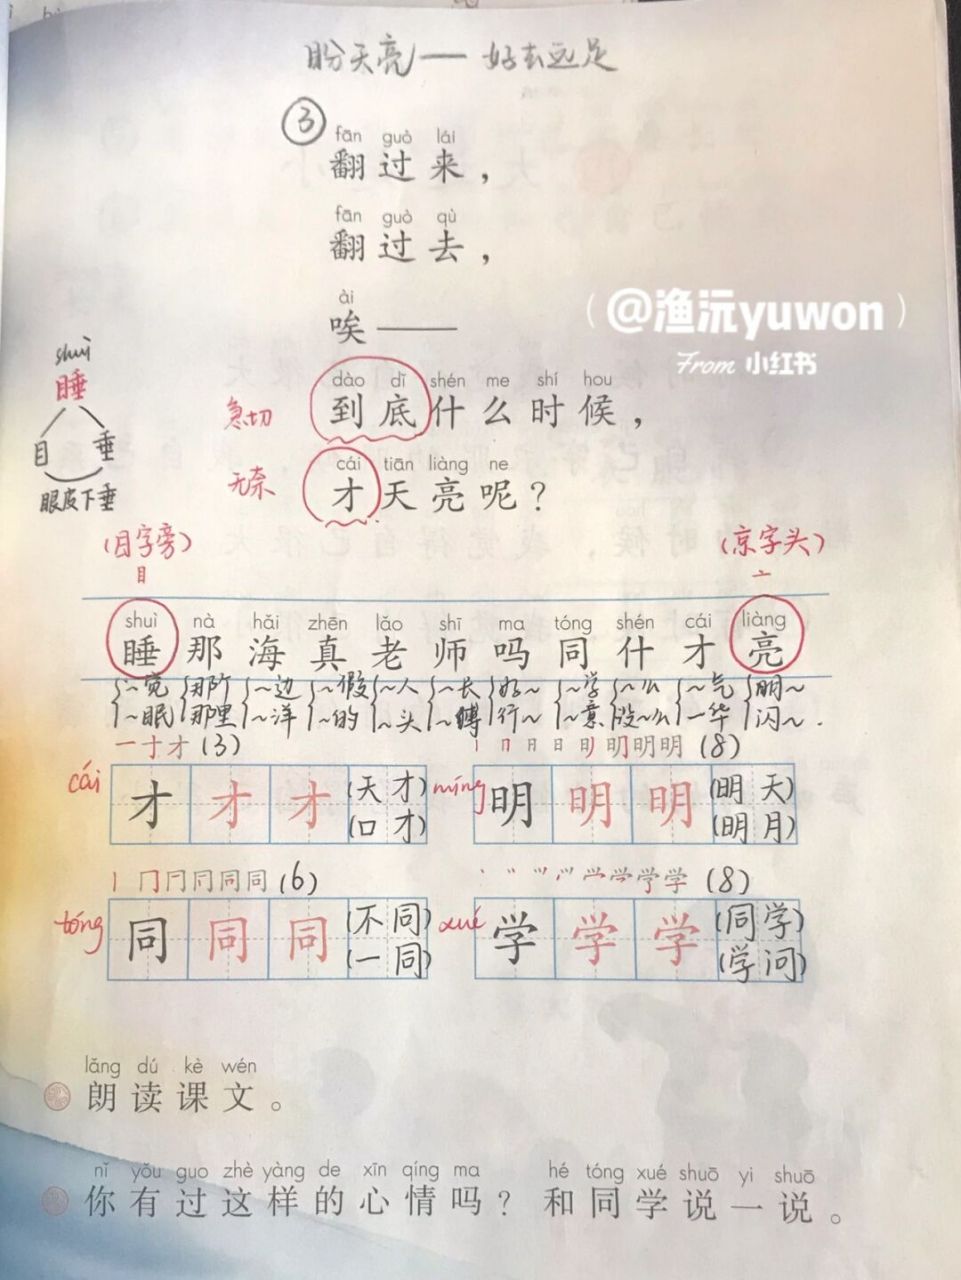 盼天亮——好去远足
③
fān guò lái
翻过来，
fān guò qù
翻过去，
ài
唉——
（@渔沅yuwon）
From 小红书
dào dǐ shén me shí hou
急切 到底什么时候，
cái tiān liàng ne
无奈 才天亮呢？
shuì
睡
目 垂
眼皮下垂
(目字旁) (京字头)
目 亠
shuì nà hǎi zhēn lǎo shī ma tóng shén cái liàng
睡 那 海 真 老 师 吗 同 什 才 亮
～觉 那个 ～边 ～假 ～人 ～长 好～ ～学 ～么 ～气 明～
～眠 那里 ～洋 ～的 ～头 ～傅 行～ ～意 没～么 ～华 闪～.
一十才(3) 丨冂日日明明明明(8)
cái 才 才 才 (天才) míng 明 明 明 (明天)
(口才) (明月)
丨冂冂同同同(6) 学学学学(8)
tóng 同 同 同 (不同) xué 学 学 学 (同学)
(一同) (学问)
lǎng dú kè wén
朗读课文。
nǐ yǒu guo zhè yàng de xīn qíng ma hé tóng xué shuō yi shuō
你有过这样的心情吗？和同学说一说。